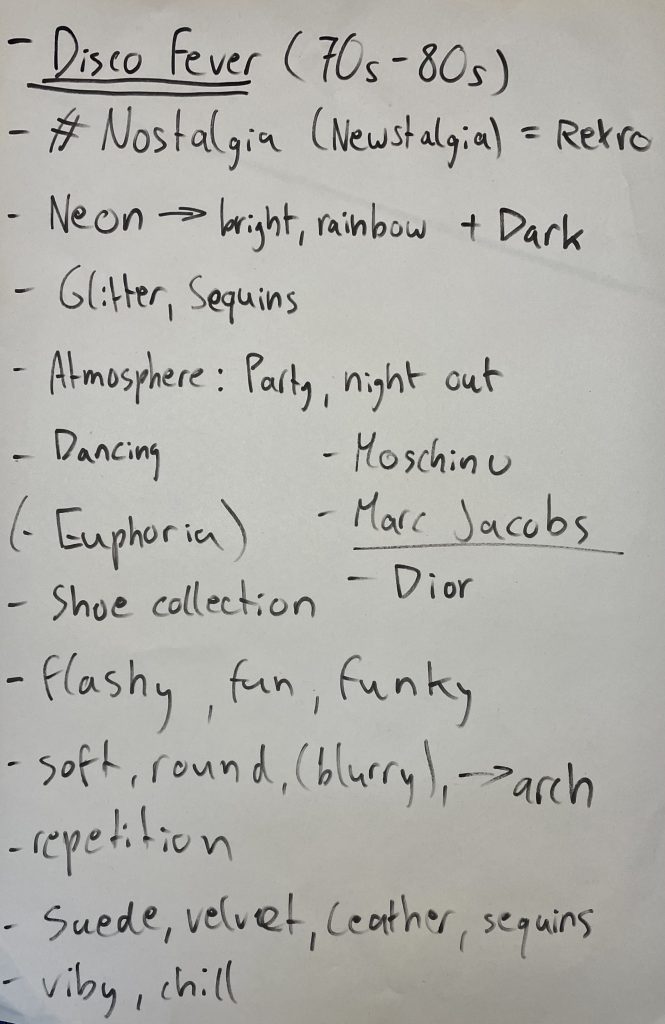 - Disco Fever (70s - 80s)
- # Nostalgia (Newstalgia) = Retro
- Neon → bright, rainbow + Dark
- Glitter, Sequins
- Atmosphere : Party, night out
- Dancing
(- Euphoria)
- Shoe collection
- Moschino
- Marc Jacobs
- Dior
- flashy, fun, funky
- soft, round, (blurry), → arch
- repetition
- Suede, velvet, leather, sequins
- viby, chill